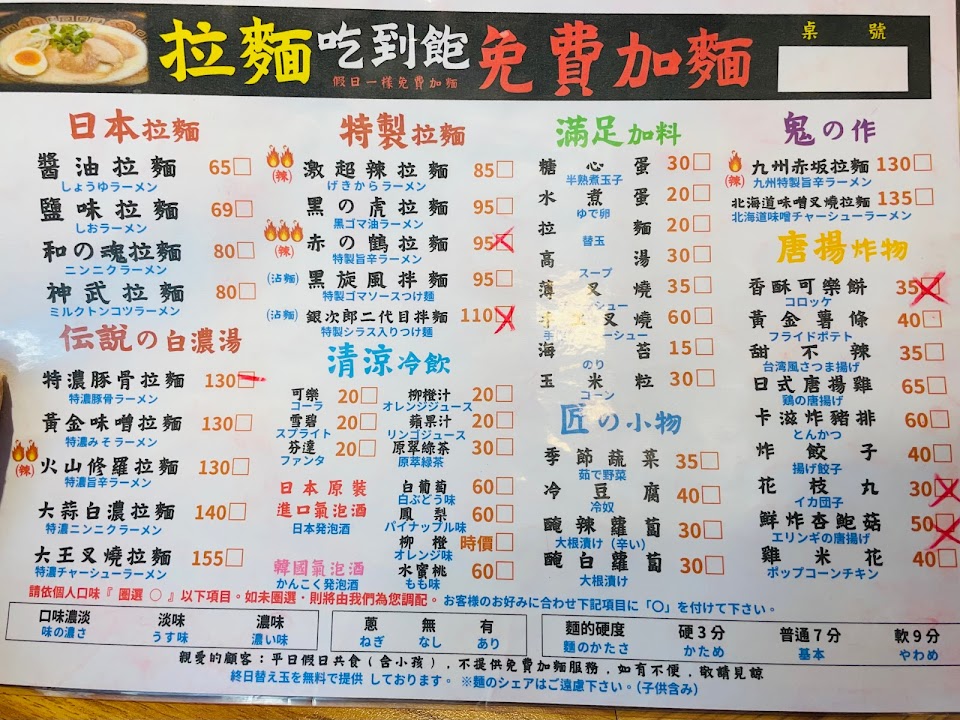 拉麵吃到飽免費加麵
假日一樣免費加麵
桌 號
日本拉麵
醬油拉麵 65
しょうゆラーメン
鹽味拉麵 69
しおラーメン
和の魂拉麵 80
ニンニクラーメン
神武拉麵 80
ミルクトンコツラーメン
伝説の白濃湯
特濃豚骨拉麵 130
特濃豚骨ラーメン
黃金味噌拉麵 130
特濃みそラーメン
(辣) 火山修羅拉麵 130
特濃旨辛ラーメン
大蒜白濃拉麵 140
特濃ニンニクラーメン
大王叉燒拉麵 155
特濃チャーシューラーメン
特製拉麵
(辣) 激超辣拉麵 85
げきからラーメン
黑の虎拉麵 95
黒ゴマ油ラーメン
(辣) 赤の鶴拉麵 95
特製旨辛ラーメン
(沾麵) 黑旋風拌麵 95
特製ゴマソースつけ麵
(沾麵) 銀次郎二代目拌麵 110
特製シラス入りつけ麵
清涼冷飲
可樂 20 柳橙汁 20
コーラ オレンジジュース
雪碧 20 蘋果汁 20
スプライト リンゴジュース
芬達 20 原翠綠茶 30
ファンタ 原萃緑茶
日本原裝
進口氣泡酒
日本発泡酒
白葡萄 60
白ぶどう味
鳳梨 60
パイナップル味
柳橙 時價
オレンジ味
韓國氣泡酒
かんこく発泡酒
水蜜桃 60
もも味
滿足加料
糖心蛋 30
半熟煮玉子
水煮蛋 20
ゆで卵
拉麵 20
替玉
高湯 30
スープ
薄叉燒 35
シュー
叉燒 60
ーシュー
海苔 15
のり
玉米粒 30
コーン
匠の小物
季節蔬菜 35
茹で野菜
冷豆腐 40
冷奴
醃辣蘿蔔 30
大根漬け（辛い）
醃白蘿蔔 30
大根漬け
鬼の作
(辣) 九州赤坂拉麵 130
九州特製旨辛ラーメン
北海道味噌叉燒拉麵 135
北海道味噌チャーシューラーメン
唐揚炸物
香酥可樂餅 35
コロッケ
黃金薯條 40
フライドポテト
甜不辣 35
台湾風さつま揚げ
日式唐揚雞 65
鶏の唐揚げ
卡滋炸豬排 60
とんかつ
炸餃子 40
揚げ餃子
花枝丸 30
イカ団子
鮮炸杏鮑菇 50
エリンギの唐揚げ
雞米花 40
ポップコーンチキン
請依個人口味『 圈選 ○ 』以下項目。如未圈選，則將由我們為您調配。 お客様のお好みに合わせ下記項目に「○」を付けて下さい。
口味濃淡 淡味 濃味
味の濃さ うす味 濃い味
蔥 無 有
ねぎ なし あり
麵的硬度 硬3分 普通7分 軟9分
麵のかたさ かため 基本 やわめ
親愛的顧客：平日假日共食（含小孩），不提供免費加麵服務，如有不便，敬請見諒
終日替え玉を無料で提供 しております。 ※麵のシェアはご遠慮下さい。（子供含み）